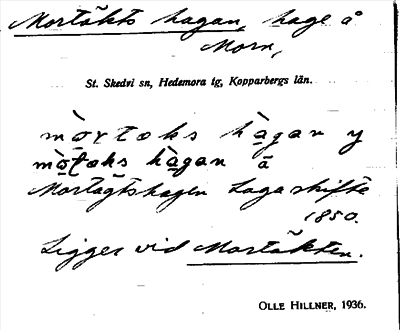 Mortäkts hagan, hage å
Morn,
St. Skedvi sn, Hedemora tg, Kopparbergs län.
mò̱rtaks hà̱gan y
mò̱ṭaks hà̱gan ā
Mortägtshagen Laga skifte
1850.
Ligger vid Mortäkten.
OLLE HILLNER, 1936.